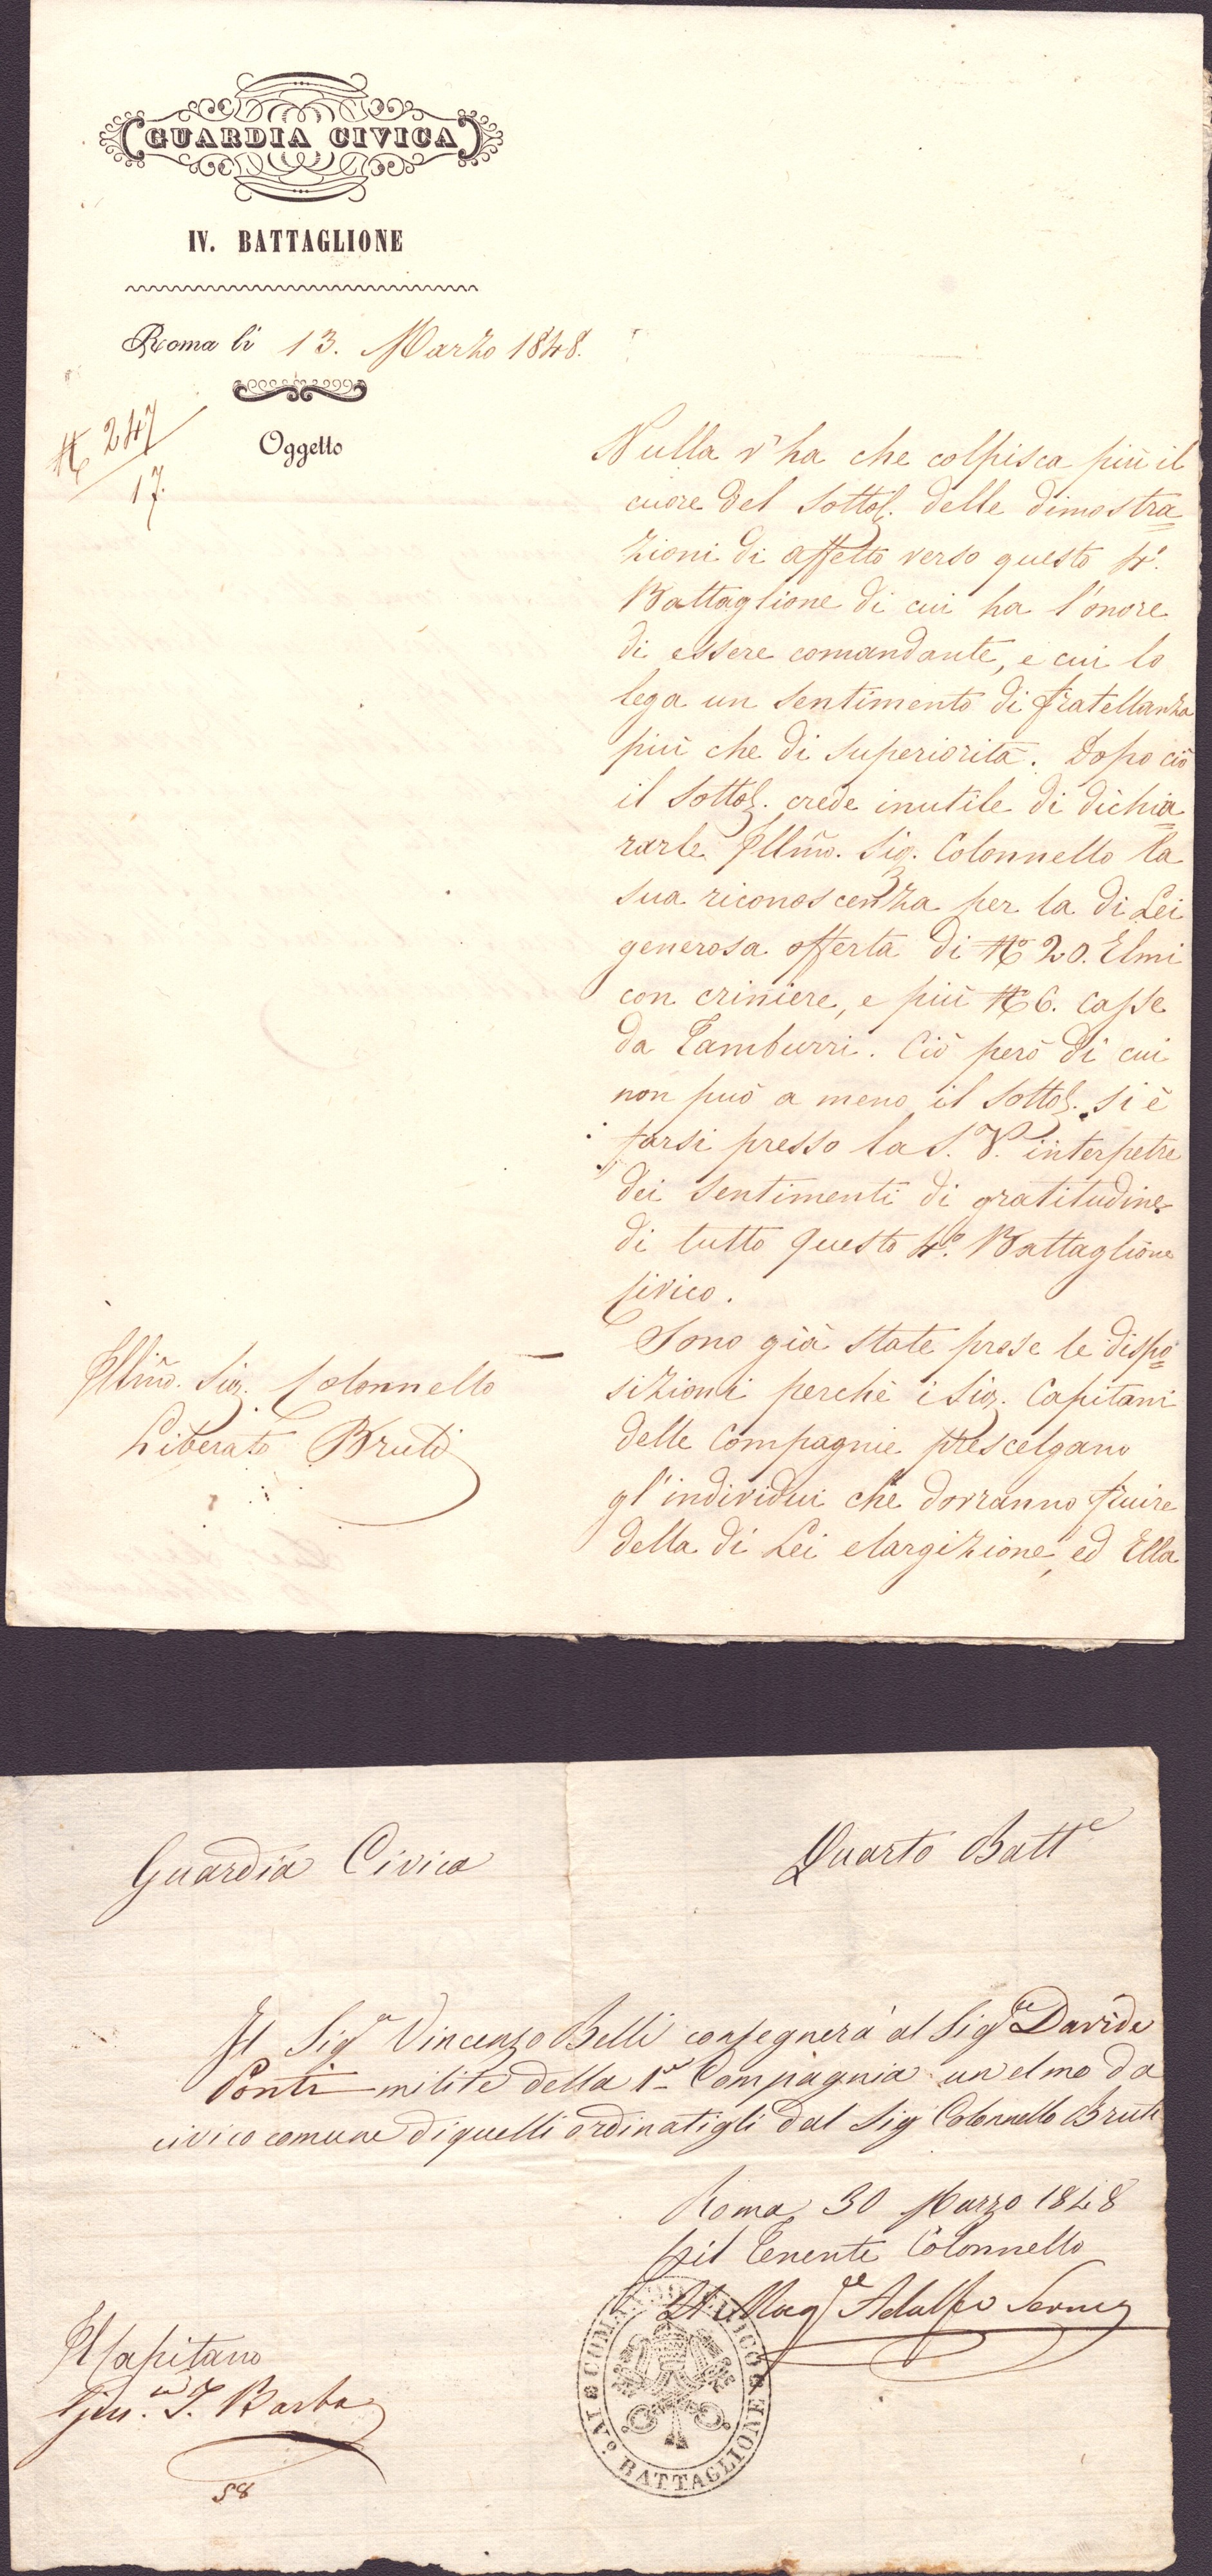 GUARDIA CIVICA
IV. BATTAGLIONE
Roma li 13. Marzo 1848.
N° 247
17.
Oggetto
Nulla v'ha che colpisca più il
cuore del Sottos. delle dimostra=
zioni di affetto verso questo 4°.
Battaglione di cui ha l'onore
di essere comandante, e cui lo
lega un sentimento di fratellanza
più che di superiorità. Dopo ciò
il Sottos. crede inutile di dichia=
rarle Illmo. Sig. Colonnello la
sua riconoscenza per la di Lei
generosa offerta di N° 20. Elmi
con criniere, e più N° 6. Casse
da Tamburri. Ciò però di cui
non può a meno il Sottos. si è
farsi presso la S. V. interpetre
dei sentimenti di gratitudine
di tutto questo 4°. Battaglione
Civico.
Sono già state prese le dispo=
sizioni perchè i Sig. Capitani
delle Compagnie prescelgano
gl'individui che dovranno fruire
della di Lei elargizione, ed Ella
Illmo. Sig. Colonnello
Liberato Bruti
Guardia Civica
Quarto Batte
Il Sigr Vincenzo Belli consegnerà al Sigre Davide
Ponti milite della 1a Compagnia un elmo da
civico comune di quelli ordinatigli dal Sig Colonnello Bruti
Roma 30 Marzo 1848
pil Tenente Colonnello
Il Magre Adolfo
Il Capitano
T. Barba
58
COMANDO CIVICO
IV.° BATTAGLIONE